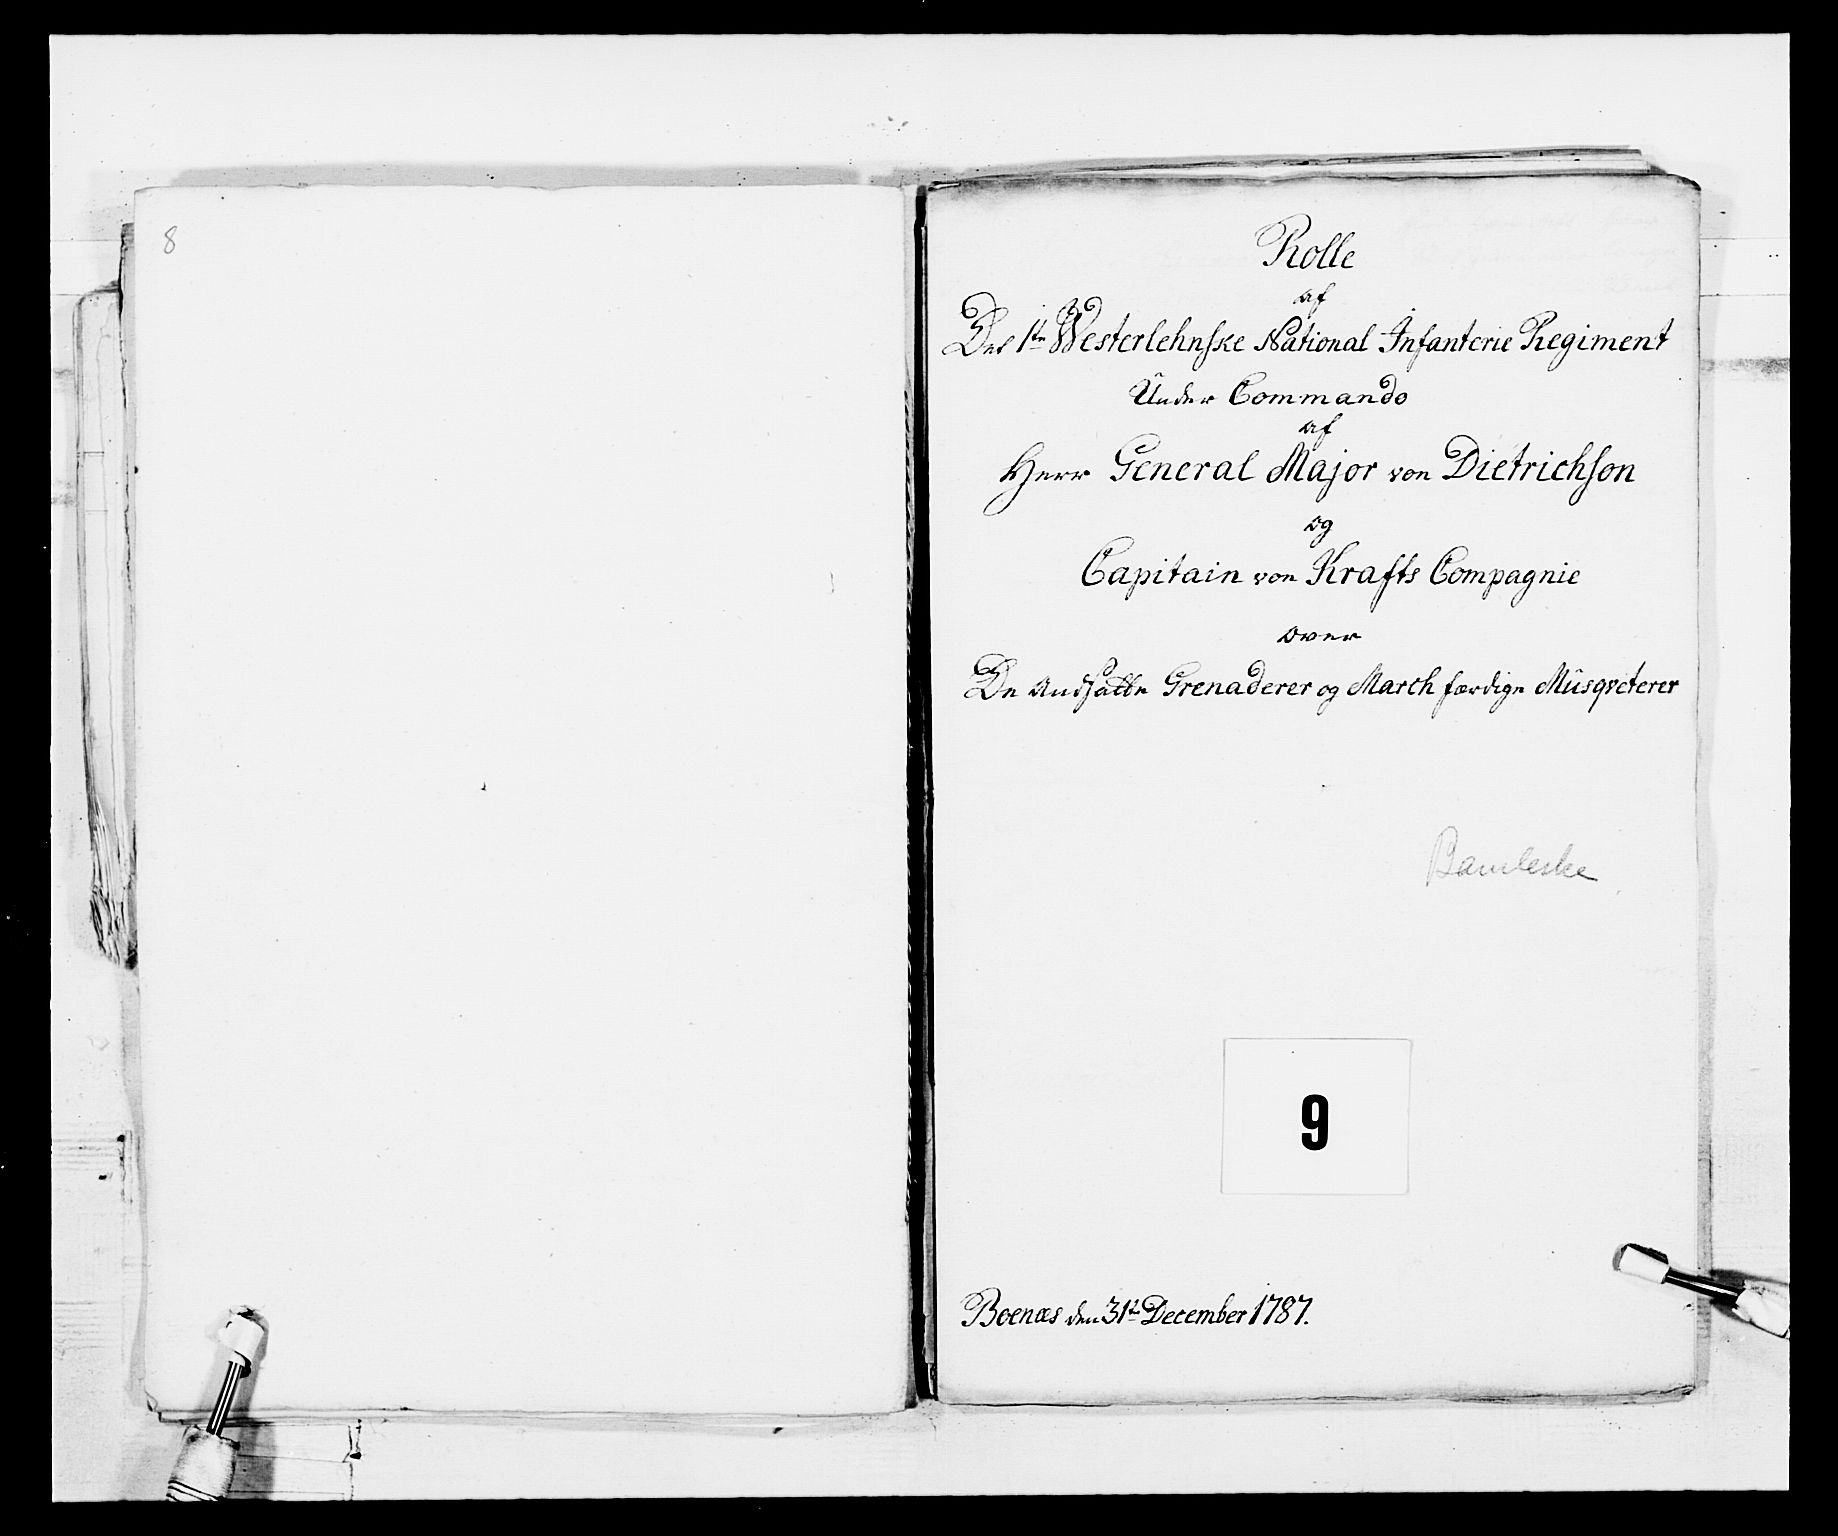 8
Rolle
af
Det 1te Westerlehnske National Infanterie Regiment
Under Commando
af
Herr General Major von Dietrichson
og
Capitain von Krafts Compagnie
over
De Ansatte Grenaderer og March færdige Musqveterer
Bamleske
9
Boenæs den 31te December 1787.